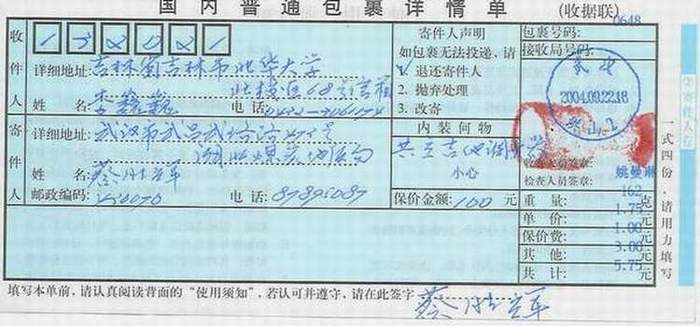 国内普通包裹详情单 (收据联)
0648
收件人
132021
详细地址: 吉林省吉林市北华大学
北校区68号信箱
姓名 李巍巍 电话
寄件人
详细地址: 武汉市武昌武珞路
湖北煤炭地质局
姓名 蔡胜军
邮政编码: 430070 电话: 87895087
寄件人声明
如包裹无法投递,请
1. 退还寄件人
2. 抛弃处理
3. 改寄
内装何物
小心
保价金额: 100 元
包裹号码:
接收局号码:
2004.09.22.18
收寄人员签章:
检查人员签章: 姚曼琳
重量: 162 克
单价: 1.75 元
保价费: 1.00 元
其他: 3.00 元
共计: 5.75 元
一式四份,请用力填写
填写本单前,请认真阅读背面的“使用须知”,若认可并遵守,请在此签字 蔡胜军